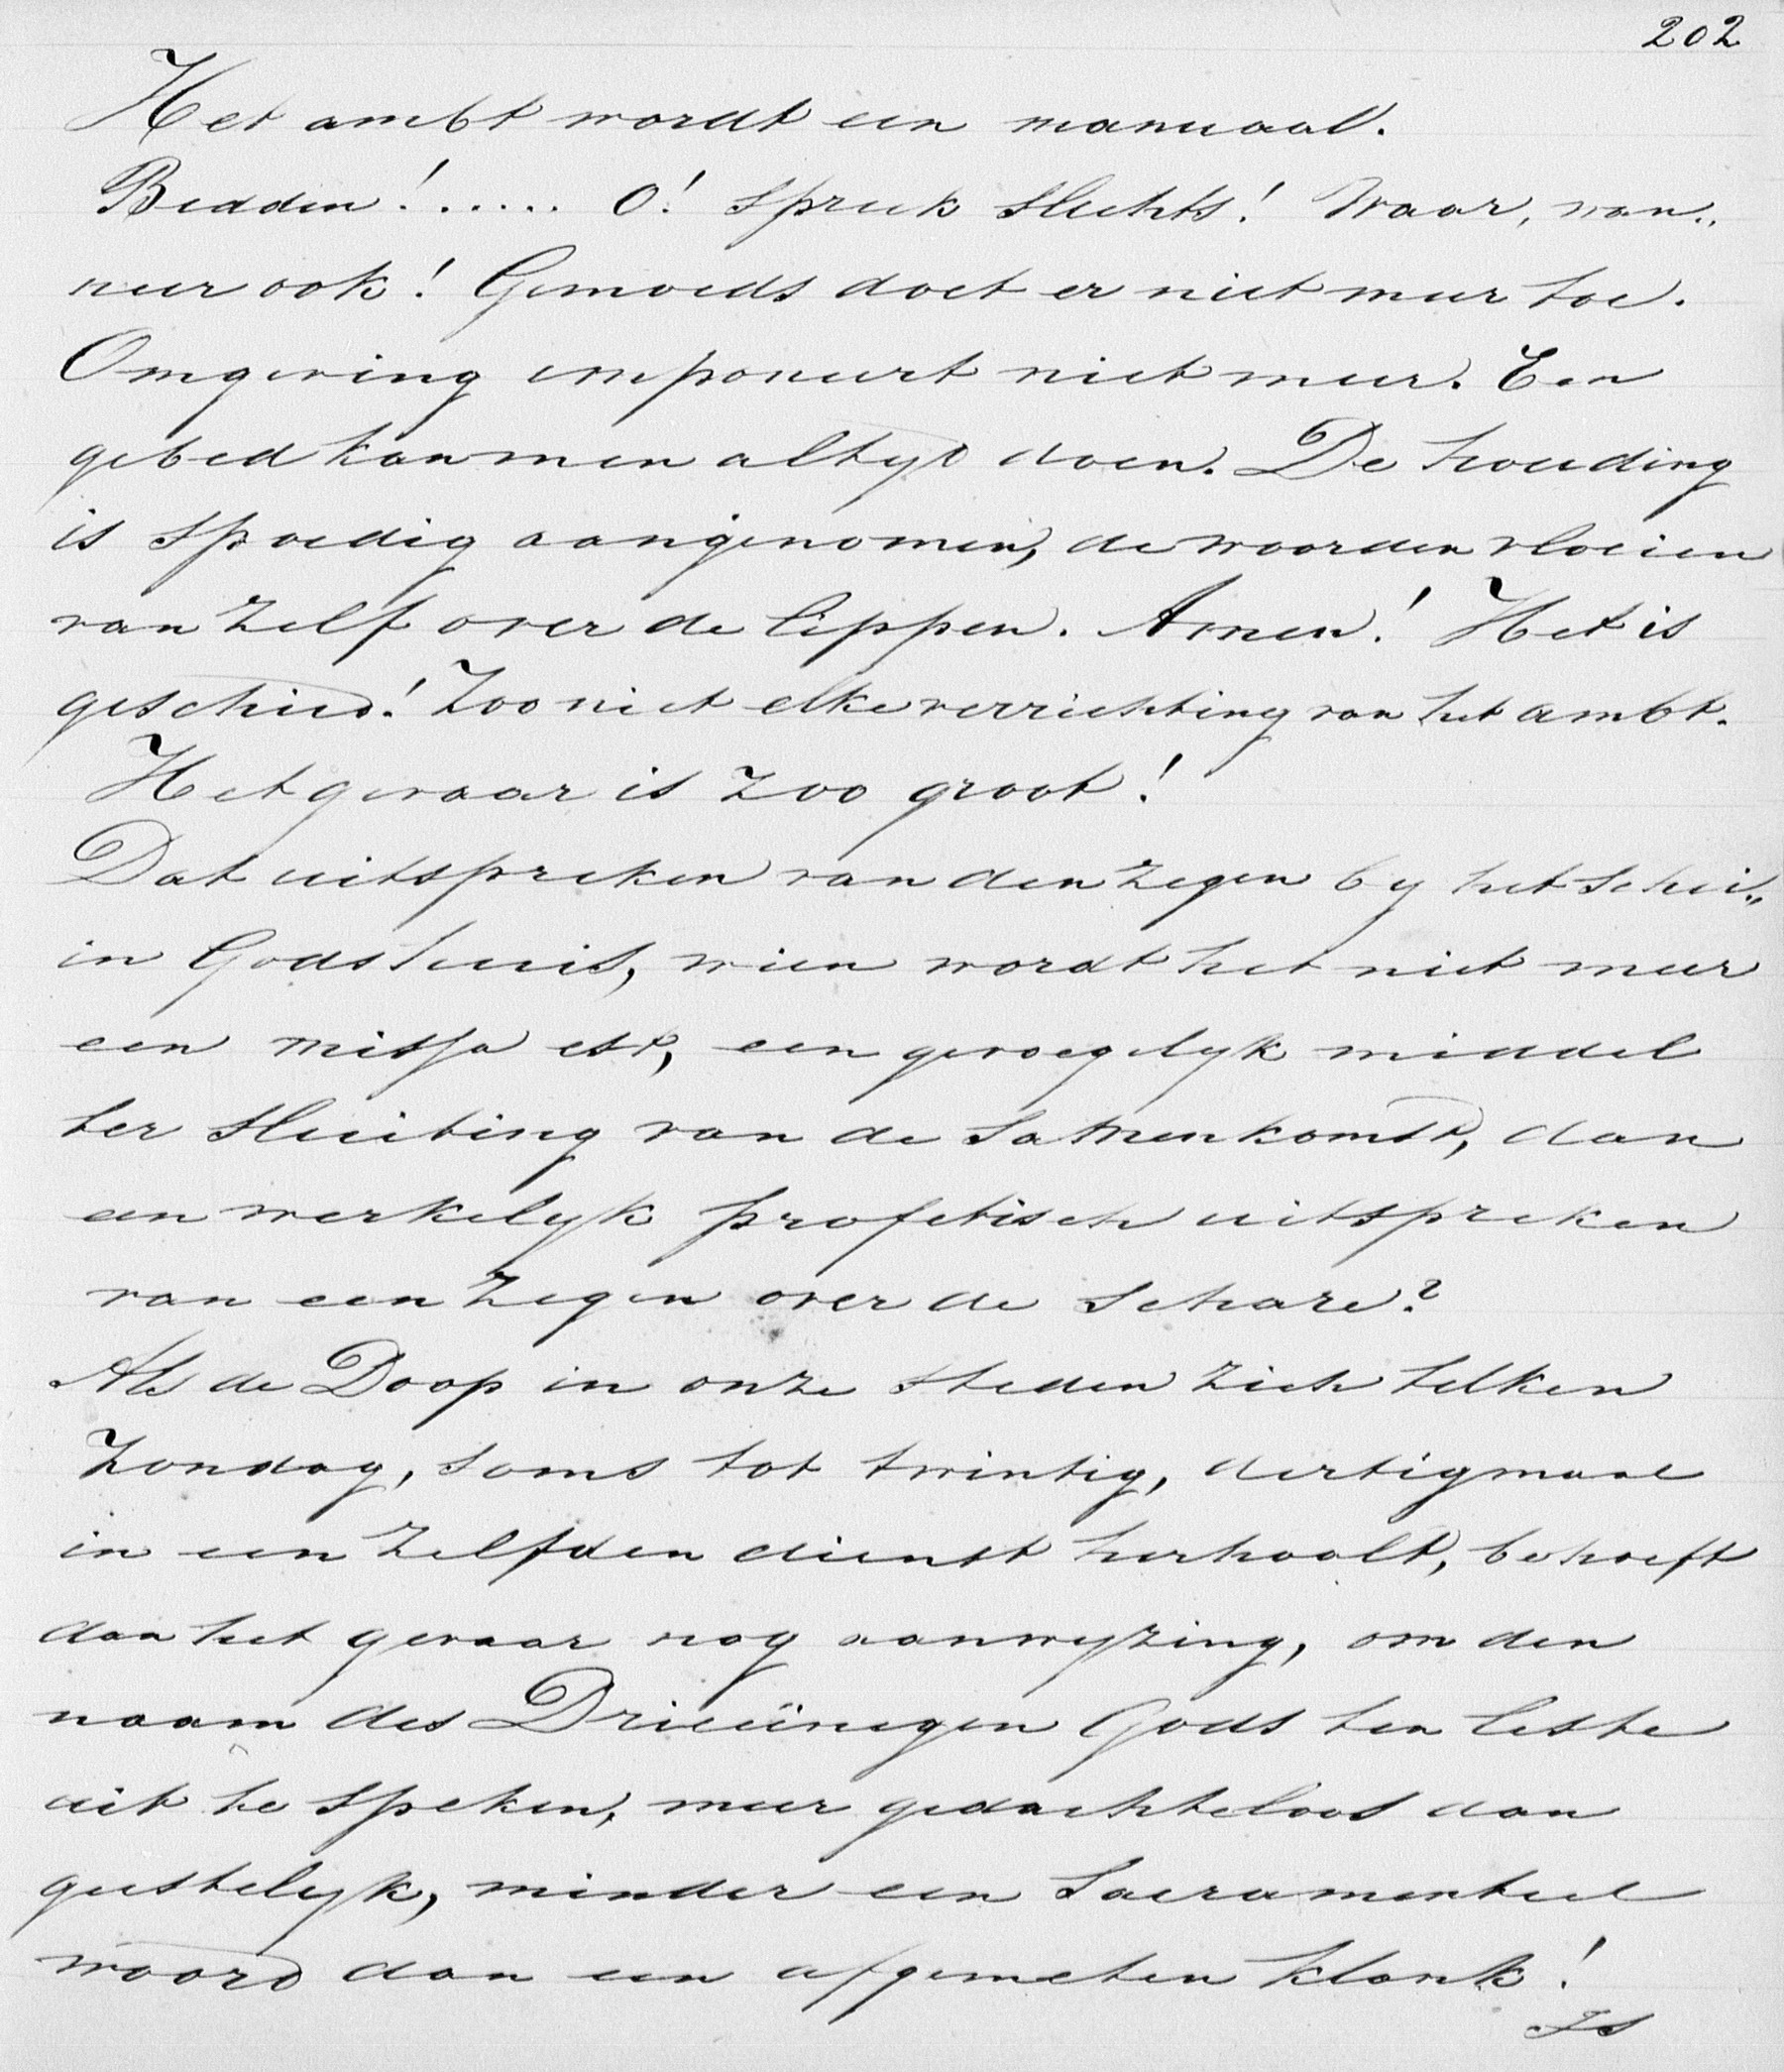 202
Het ambt wordt een manuaal.
Bidden!..... O! Spreek slechts! Waar, wan„
neer ook! Gemoeds doet er niet meer toe.
Omgeving imponeert niet meer. Een
gebed kan men altyd doen. De houding
is spoedig aangenomen, de woorden vloeien
van zelf over de lippen. Amen! Het is
geschied! Zoo niet elke verrichting van het ambt.
Het gevaar is zoo groot!
Dat uitspreken van den zegen by het schei„
in Gods huis, wien wordt het niet meer
een missa est, een gevoegelyk middel
ter sluiting van de samenkomst, dan
een werkelyk profetisch uitspreken
van een zegen over de schare?
Als de Doop in onze steden zich telken
Zondag, soms tot twintig, dertigmaal
in een zelfden dienst herhaalt, behoeft
dan het gevaar nog aanwyzing, om den
naam des Drieëenegen Gods ten leste
uit te speken, meer gedachteloos dan
geestelyk, minder een Sacramenteel
woord dan een afgemeten klank!
Is